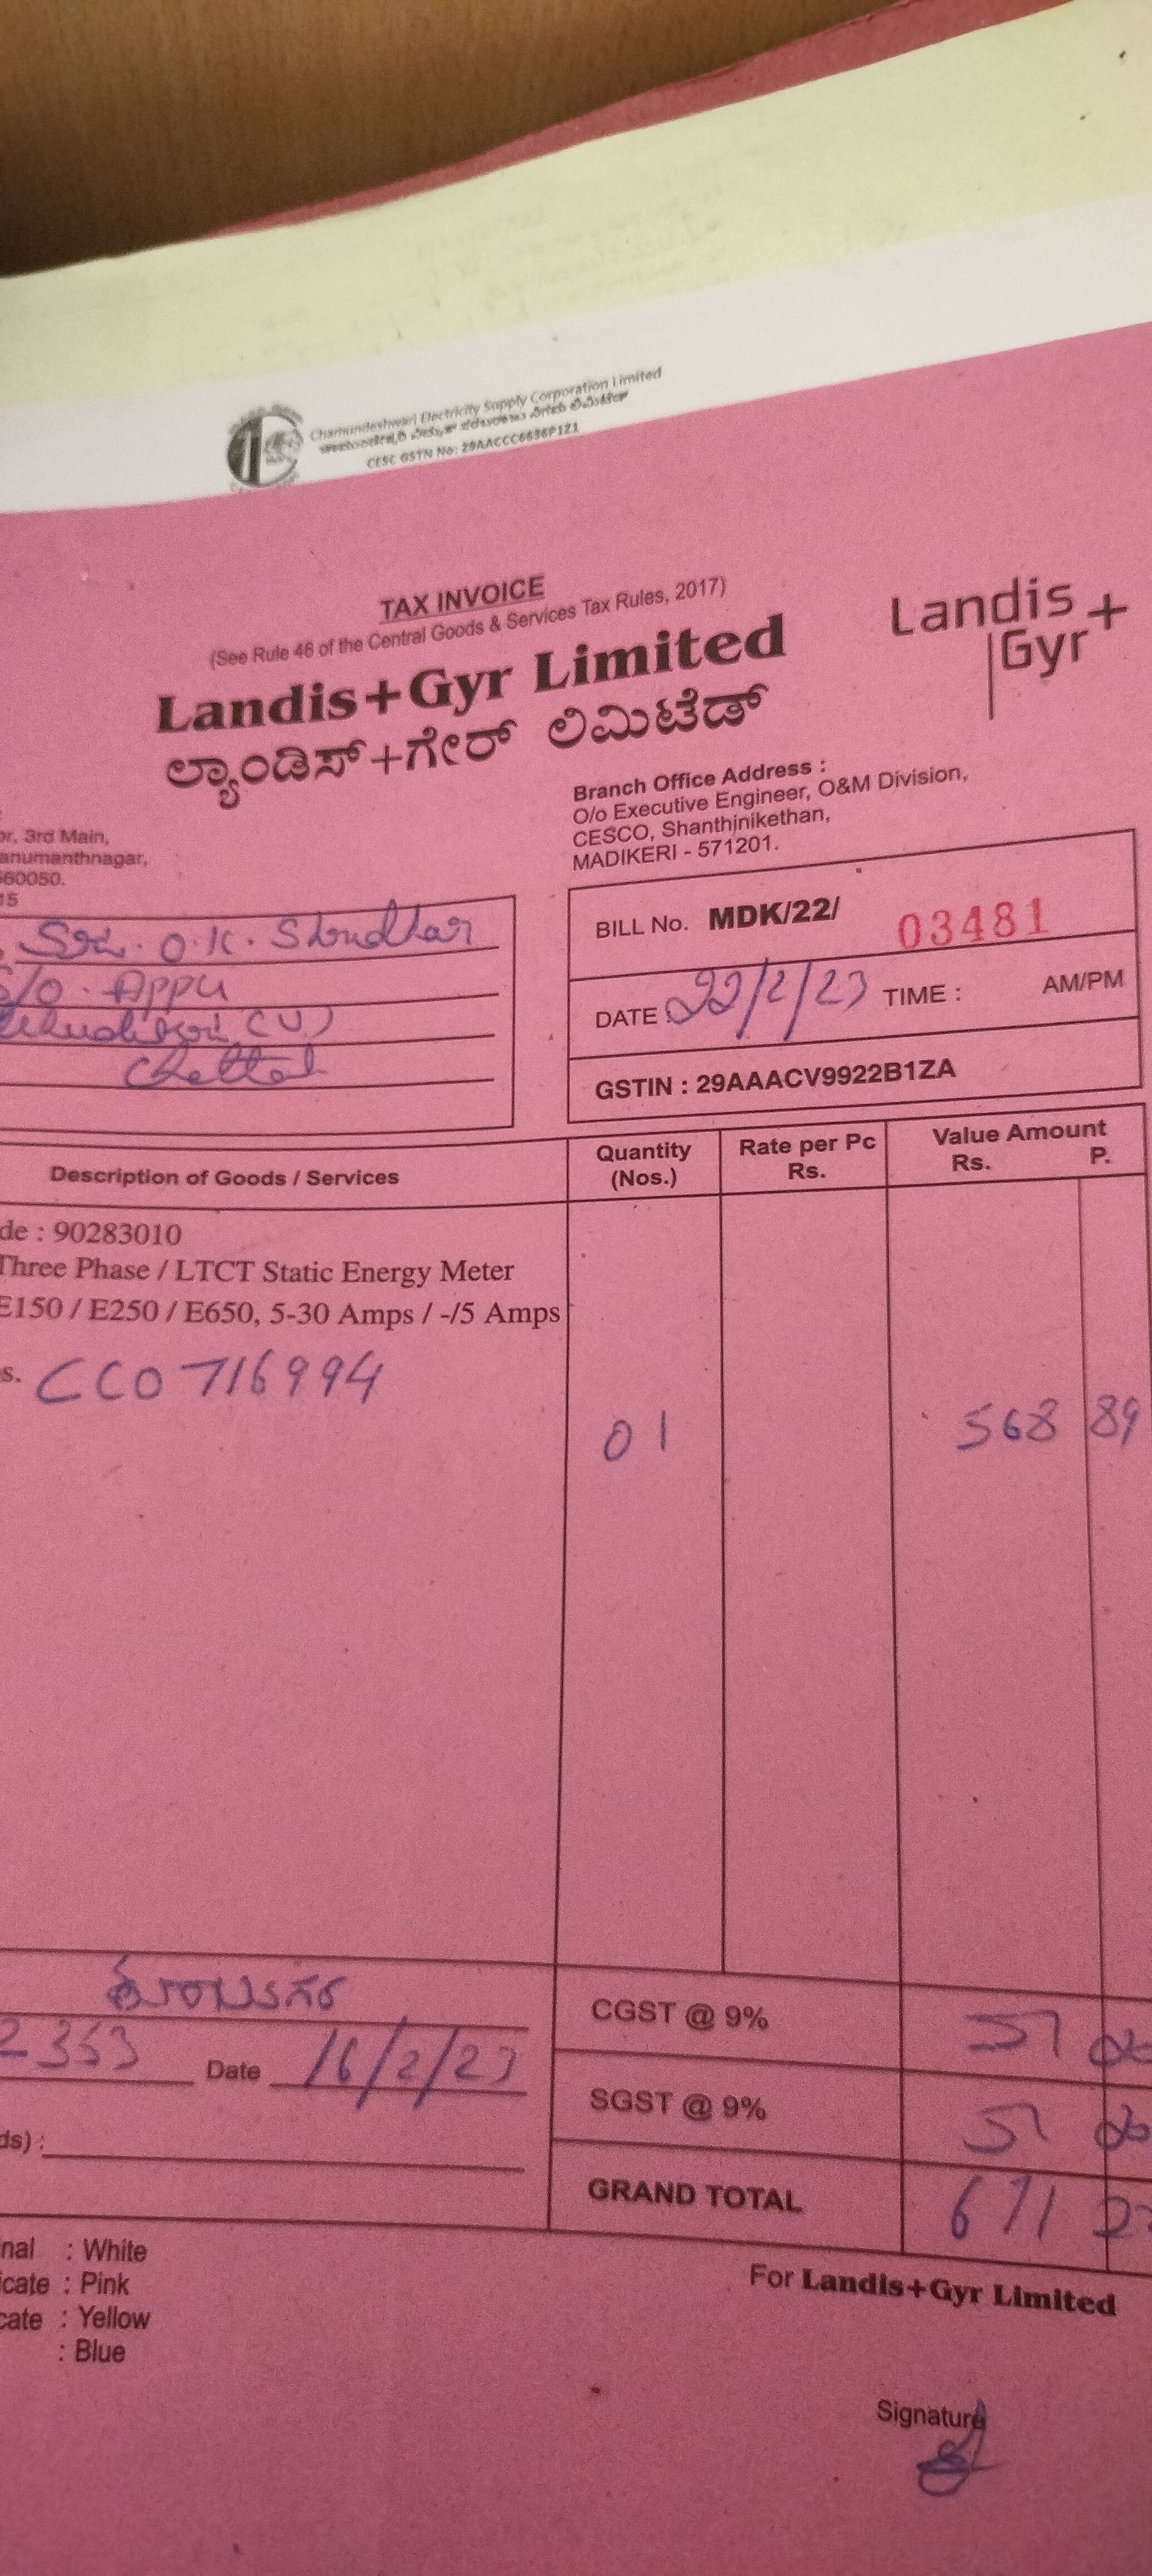 Chamundeshwari Electricity Supply Corporation Limited
ಚಾಮುಂಡೇಶ್ವರಿ ವಿದ್ಯುತ್ ಸರಬರಾಜು ನಿಗಮ ಲಿಮಿಟೆಡ್
CESC GSTN No: 29AACCC6636P1Z1
TAX INVOICE
(See Rule 46 of the Central Goods & Services Tax Rules, 2017)
Landis+Gyr Limited
ಲ್ಯಾಂಡಿಸ್+ಗೇರ್ ಲಿಮಿಟೆಡ್
Landis
Gyr+
Branch Office Address :
O/o Executive Engineer, O&M Division,
CESCO, Shanthinikethan,
MADIKERI - 571201.
or, 3rd Main,
anumanthnagar,
560050.
15
O.K.
S/O. Appu
BILL No. MDK/22/ 03481
DATE 22/2/23 TIME : AM/PM
GSTIN : 29AAACV9922B1ZA
Description of Goods / Services
Quantity (Nos.)
Rate per Pc Rs.
Value Amount Rs. P.
de : 90283010
Three Phase / LTCT Static Energy Meter
E150 / E250 / E650, 5-30 Amps / -/5 Amps
s. CC0716994
01 568 89
2353 Date 16/2/23
ds) :
CGST @ 9% 51
SGST @ 9% 51
GRAND TOTAL 671
nal : White
icate : Pink
cate : Yellow
: Blue
For Landis+Gyr Limited
Signature